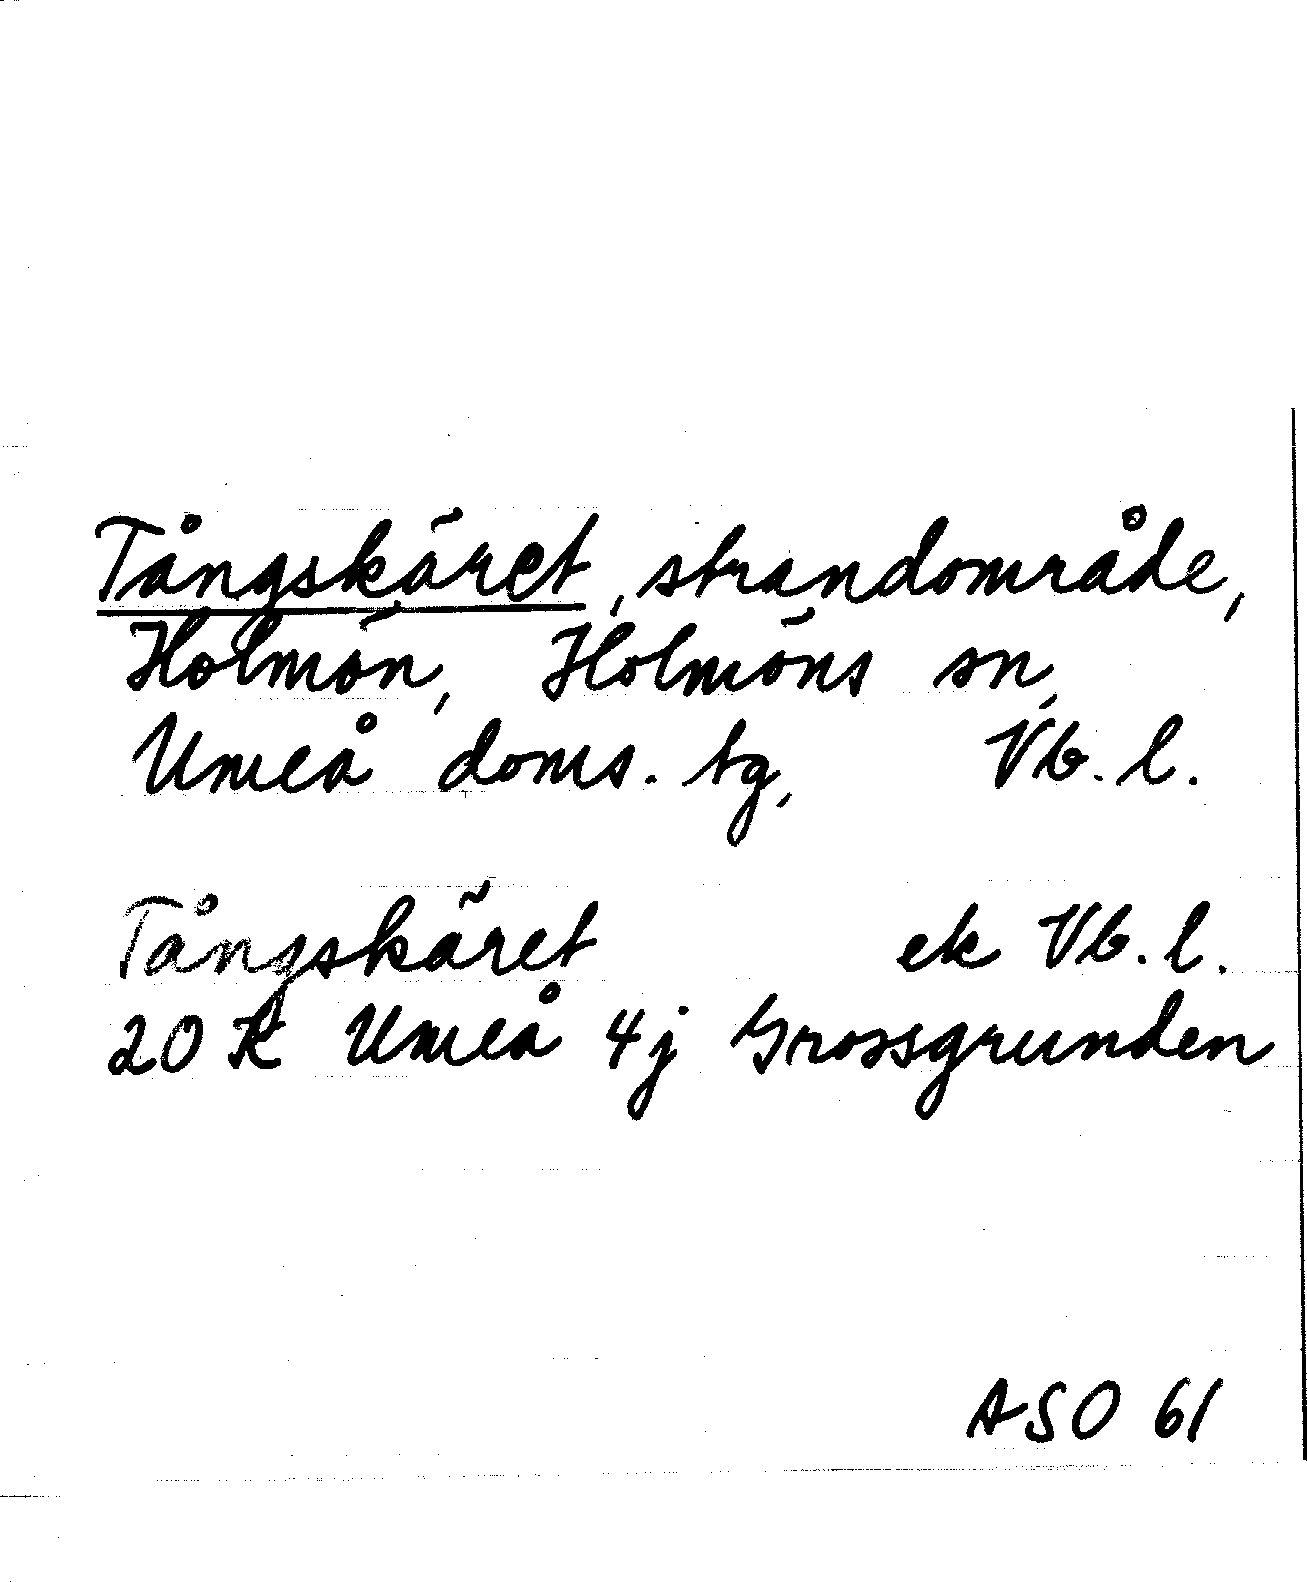 Tångskäret, strandområde,
Holmön, Holmöns sn,
Umeå doms. tg, Vb. l.
Tångskäret ek Vb. l.
20 K Umeå 4j Grossgrunden
ASO 61